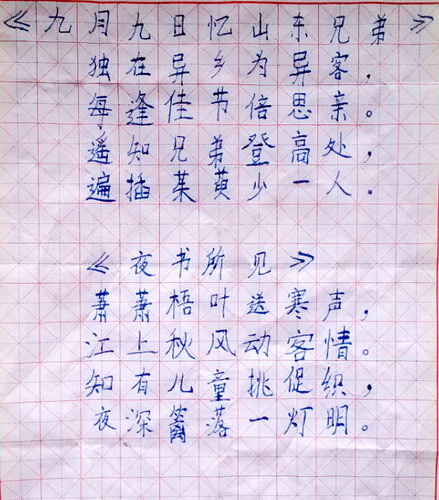 《九月九日忆山东兄弟》
独在异乡为异客，
每逢佳节倍思亲。
遥知兄弟登高处，
遍插茱萸少一人。
《夜书所见》
萧萧梧叶送寒声，
江上秋风动客情。
知有儿童挑促织，
夜深篱落一灯明。